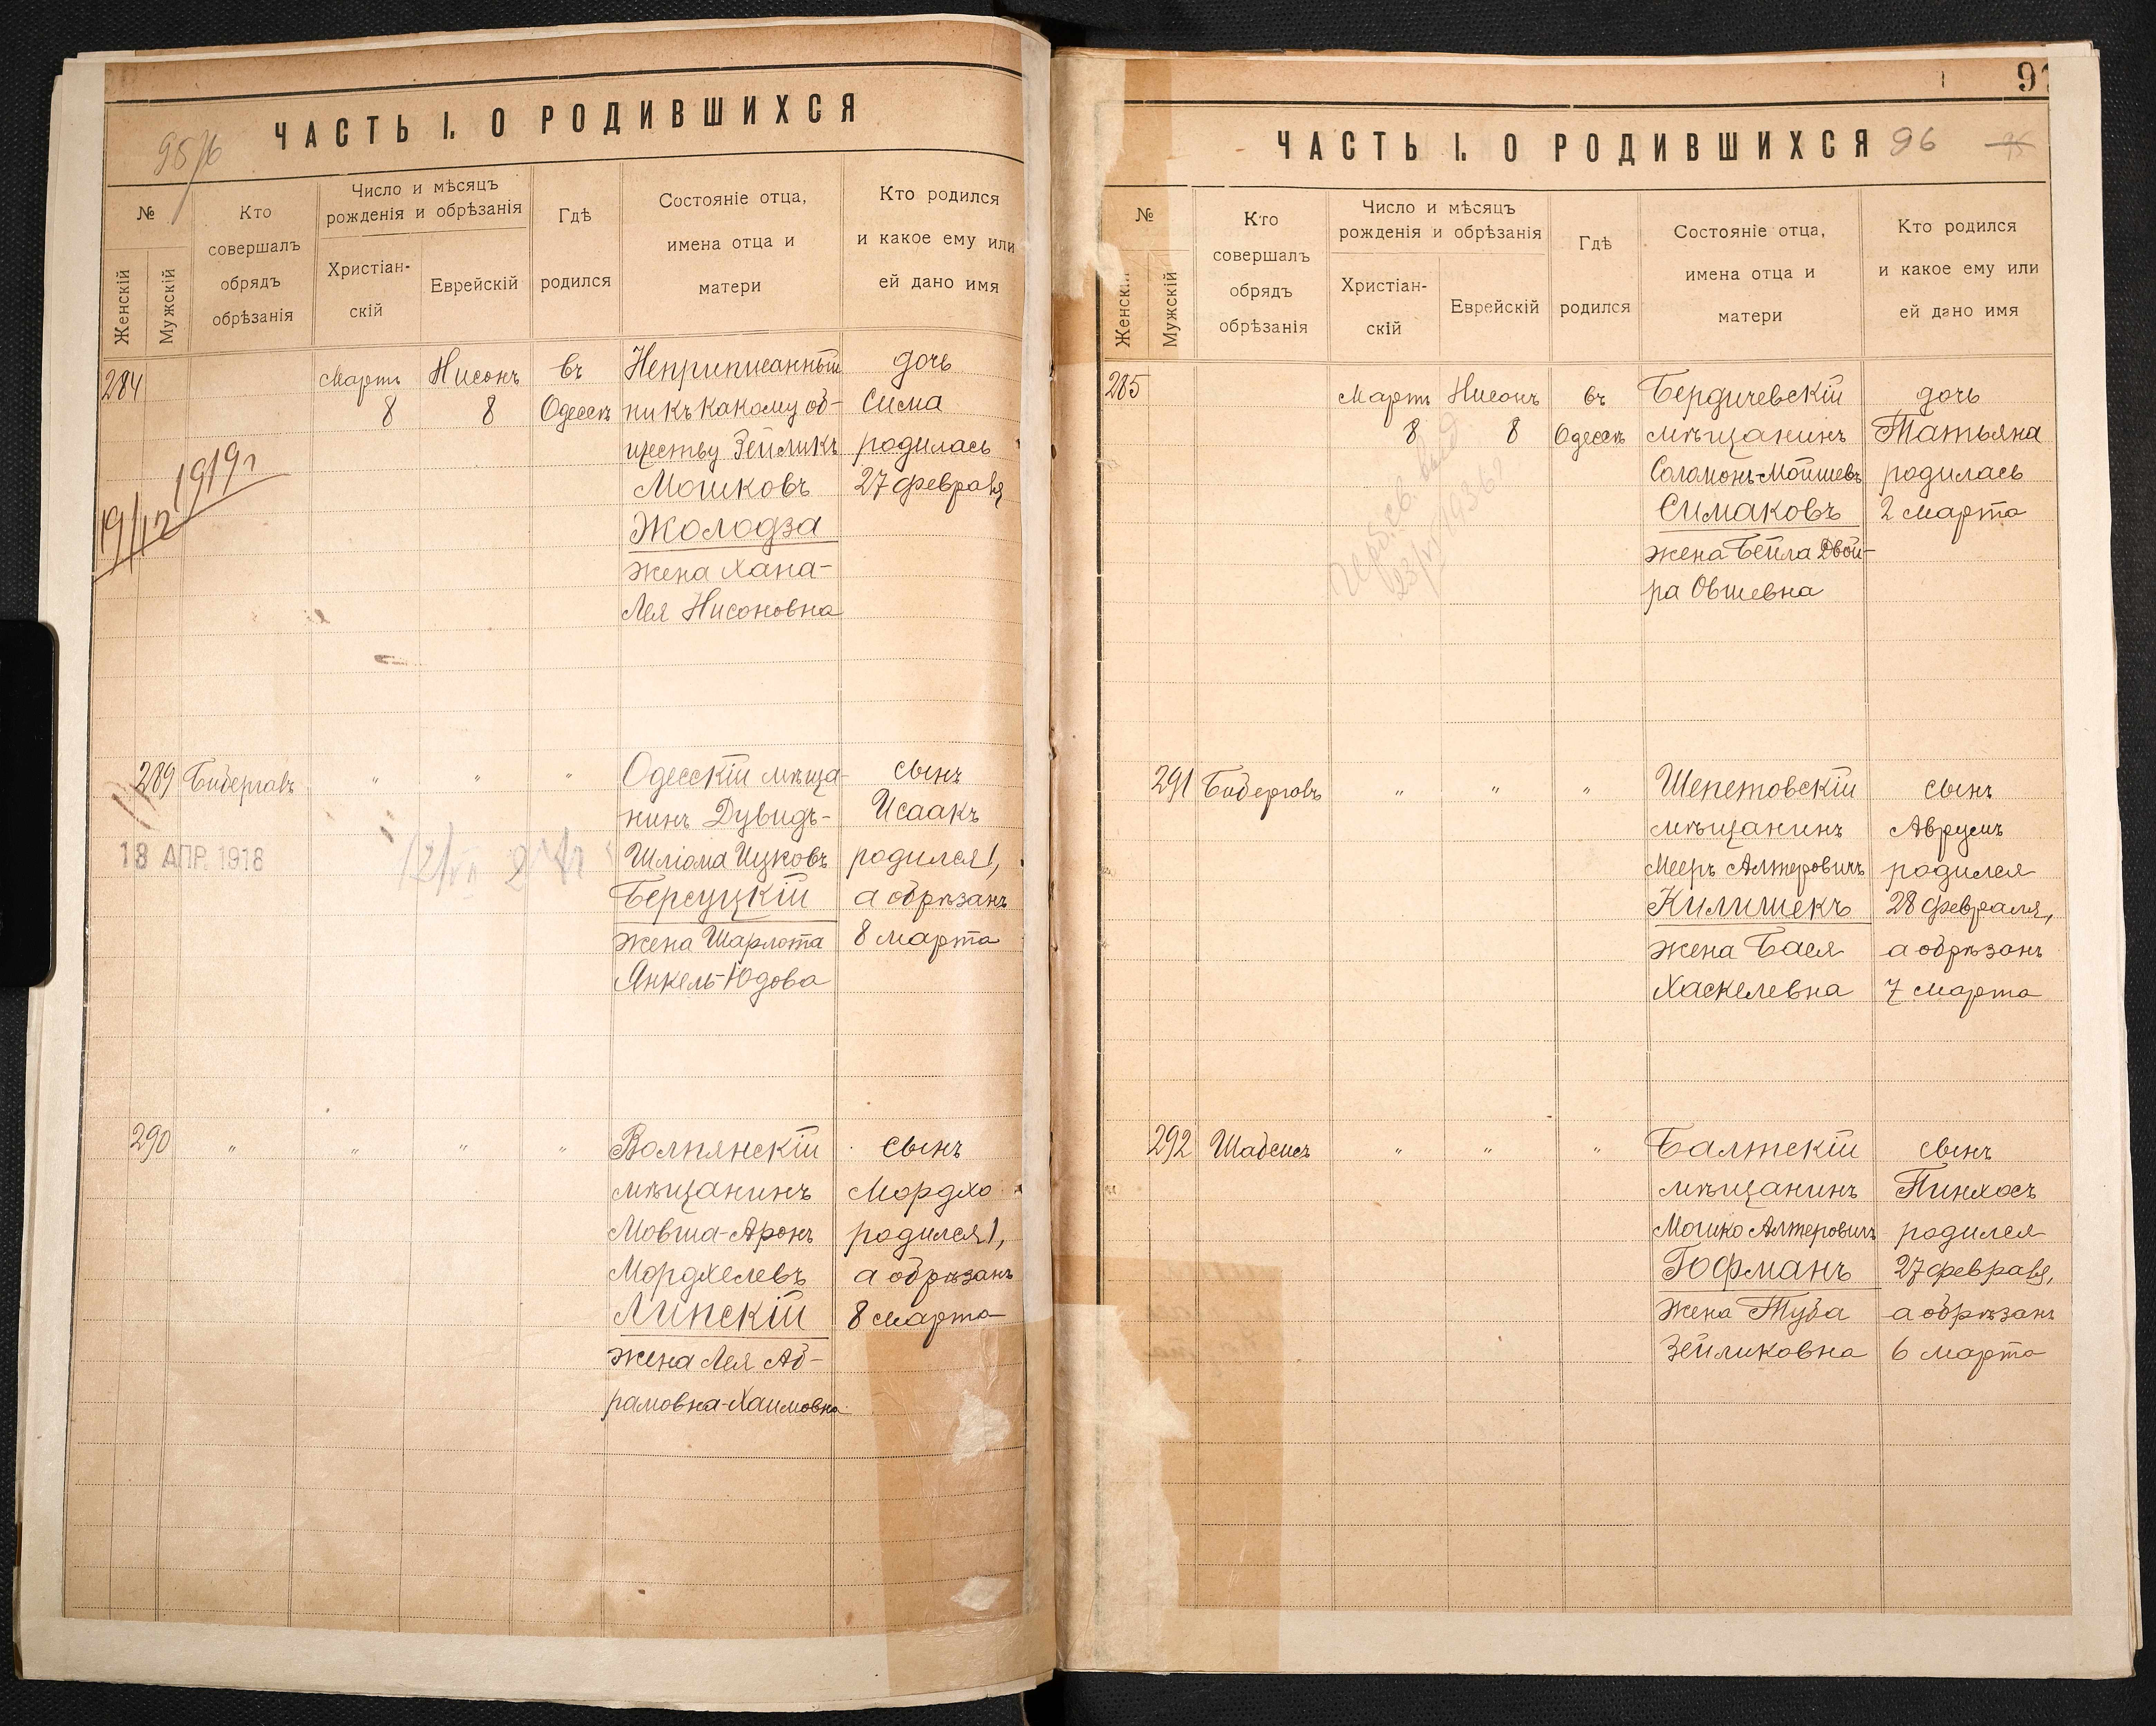 ЧАСТЬ I. О РОДИВШИХСЯ
№
Женскій
Мужскій
Кто
совершалъ
обрядъ
обрѣзанія
Число и мѣсяцъ
рожденія и обрѣзанія
Христіан-
скій
Еврейскій
Гдѣ
родился
Состояніе отца,
имена отца и
матери
Кто родился
и какое ему или
ей дано имя
284
Мартъ
8
Нисонъ
8
въ
Одессѣ
Неприписанный
ни къ какому об-
ществу Зейликъ
Мошковъ
Жолодза
жена Хана-
Лея Нисоновна
дочь
Сима
родилась
27 февраля
19/12 1919 г
289
Бидергавъ
"
"
"
Одесскій мѣща-
нинъ Дувидъ-
Шліома Ицковъ
Берсуцкій
жена Шарлота
Янкель-Юдова
сынъ
Исаакъ
родился 1,
а обрѣзанъ
8 марта
18 АПР. 1918
290
"
"
"
"
Волпянскій
мѣщанинъ
Мовша-Аронъ
Мордхелевъ
Липскій
жена Лея Аб-
рамовна-Хаимовна
сынъ
Мордхо
родился 1,
а обрѣзанъ
8 марта
ЧАСТЬ I. О РОДИВШИХСЯ 96
№
Мужскій
Кто
совершалъ
обрядъ
обрѣзанія
Число и мѣсяцъ
рожденія и обрѣзанія
Христіан-
скій
Еврейскій
Гдѣ
родился
Состояніе отца,
имена отца и
матери
Кто родился
и какое ему или
ей дано имя
285
Мартъ
8
Нисонъ
8
въ
Одессѣ
Бердичевскій
мѣщанинъ
Соломонъ-Мойшевъ
Симаковъ
жена Бейла Двой-
ра Овшевна
дочь
Татьяна
родилась
2 марта
291
Бидергавъ
"
"
"
Шепетовскій
мѣщанинъ
Мееръ Алтеровичъ
Килишекъ
жена Бася
Хаскелевна
сынъ
Аврумъ
родился
28 февраля,
а обрѣзанъ
7 марта
292
Шабсисъ
"
"
"
Балтскій
мѣщанинъ
Мошко Алтеровичъ
Гофманъ
жена Туба
Зейликовна
сынъ
Пинхосъ
родился
27 февраля,
а обрѣзанъ
6 марта